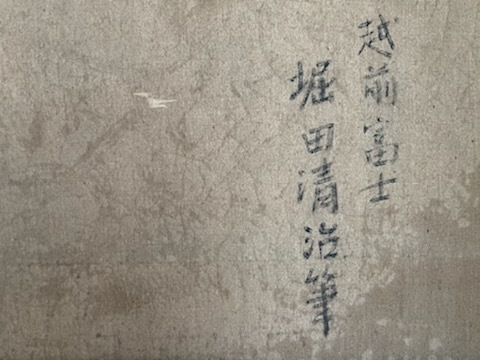 越前富士
堀田清治筆